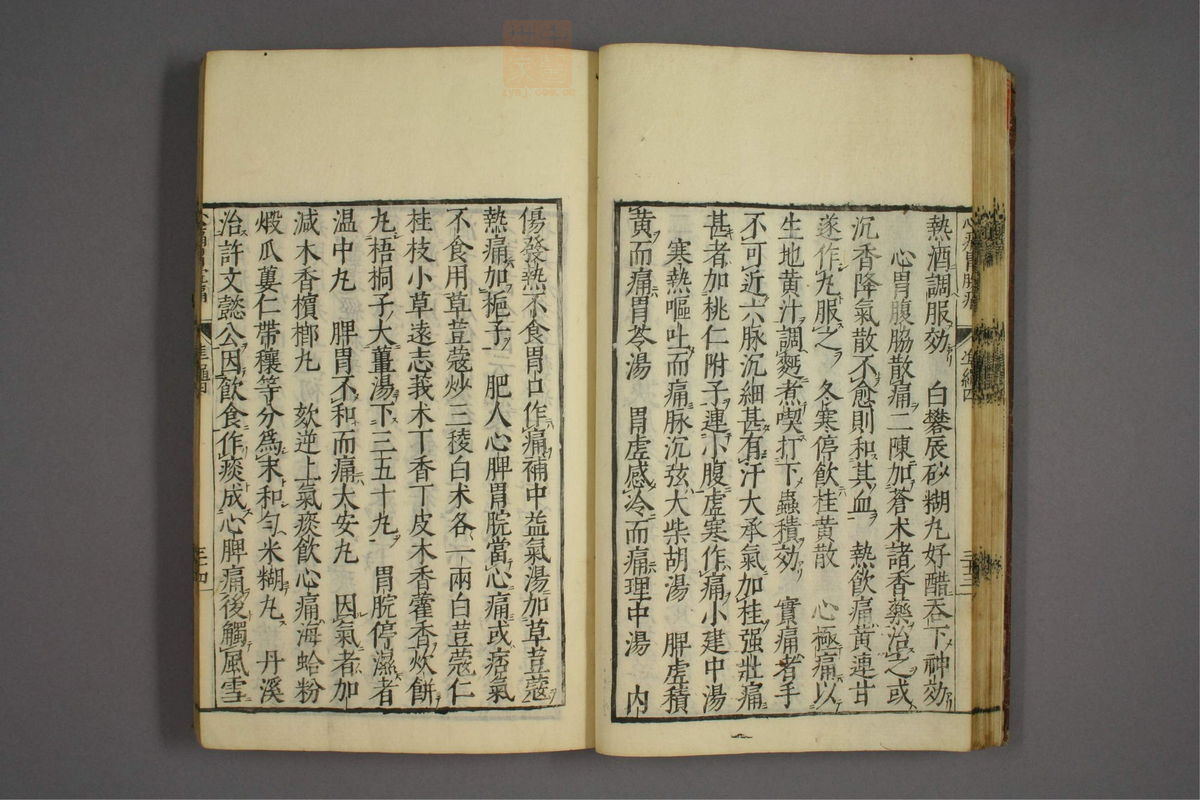 熱酒調服効　白礬辰砂糊丸好醋吞下神効
心胃腹脇散痛二陳加蒼术諸香藥治之或
沉香降氣散不愈則和其血　熱飲痛黄連甘
遂作丸服之　冬寒停飲桂黄散　心極痛以
生地黄汁調麪煮喫打下蟲積効　實痛者手
不可近六脉沉細甚有汗大承氣加桂强壯痛
甚者加桃仁附子連小腹虚寒作痛小建中湯
寒熱嘔吐而痛脉沉弦大柴胡湯　脾虚積
黄而痛胃苓湯　胃虚感冷而痛理中湯　内
傷發熱不食胃口作痛補中益氣湯加草荳蔻
熱痛加梔子　肥人心脾胃脘當心痛或痞氣
不食用草荳蔻炒三稜白术各一兩白荳蔻仁
桂枝小草遠志莪木丁香丁皮木香藿香炊餅
丸梧桐子大薑湯下三五十丸　胃脘停濕者
温中丸　脾胃不和而痛大安丸　因氣者加
减木香檳榔丸　欬逆上氣痰飲心痛海蛤粉
煅瓜蔞仁帶穰等分爲末和勻米糊丸　丹溪
治許文懿公因飲食作痰成心脾痛後觸風雪